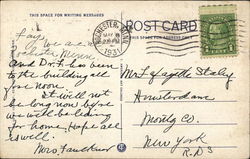 THIS SPACE FOR WRITING MESSAGES
POST CARD
ROCHESTER, MINN.
MAY
1931
THIS SPACE FOR ADDRESS ONLY
we are
Rochester Minn.
and Dr. F. has been
to the building all
fore noon. It will not
be long now before
we will be driving
for home. Hope all
is well.
Mrs. Faulkner
Mrs. Lafayette Staley
Amsterdam
Montg Co.
New York
R.D. 3